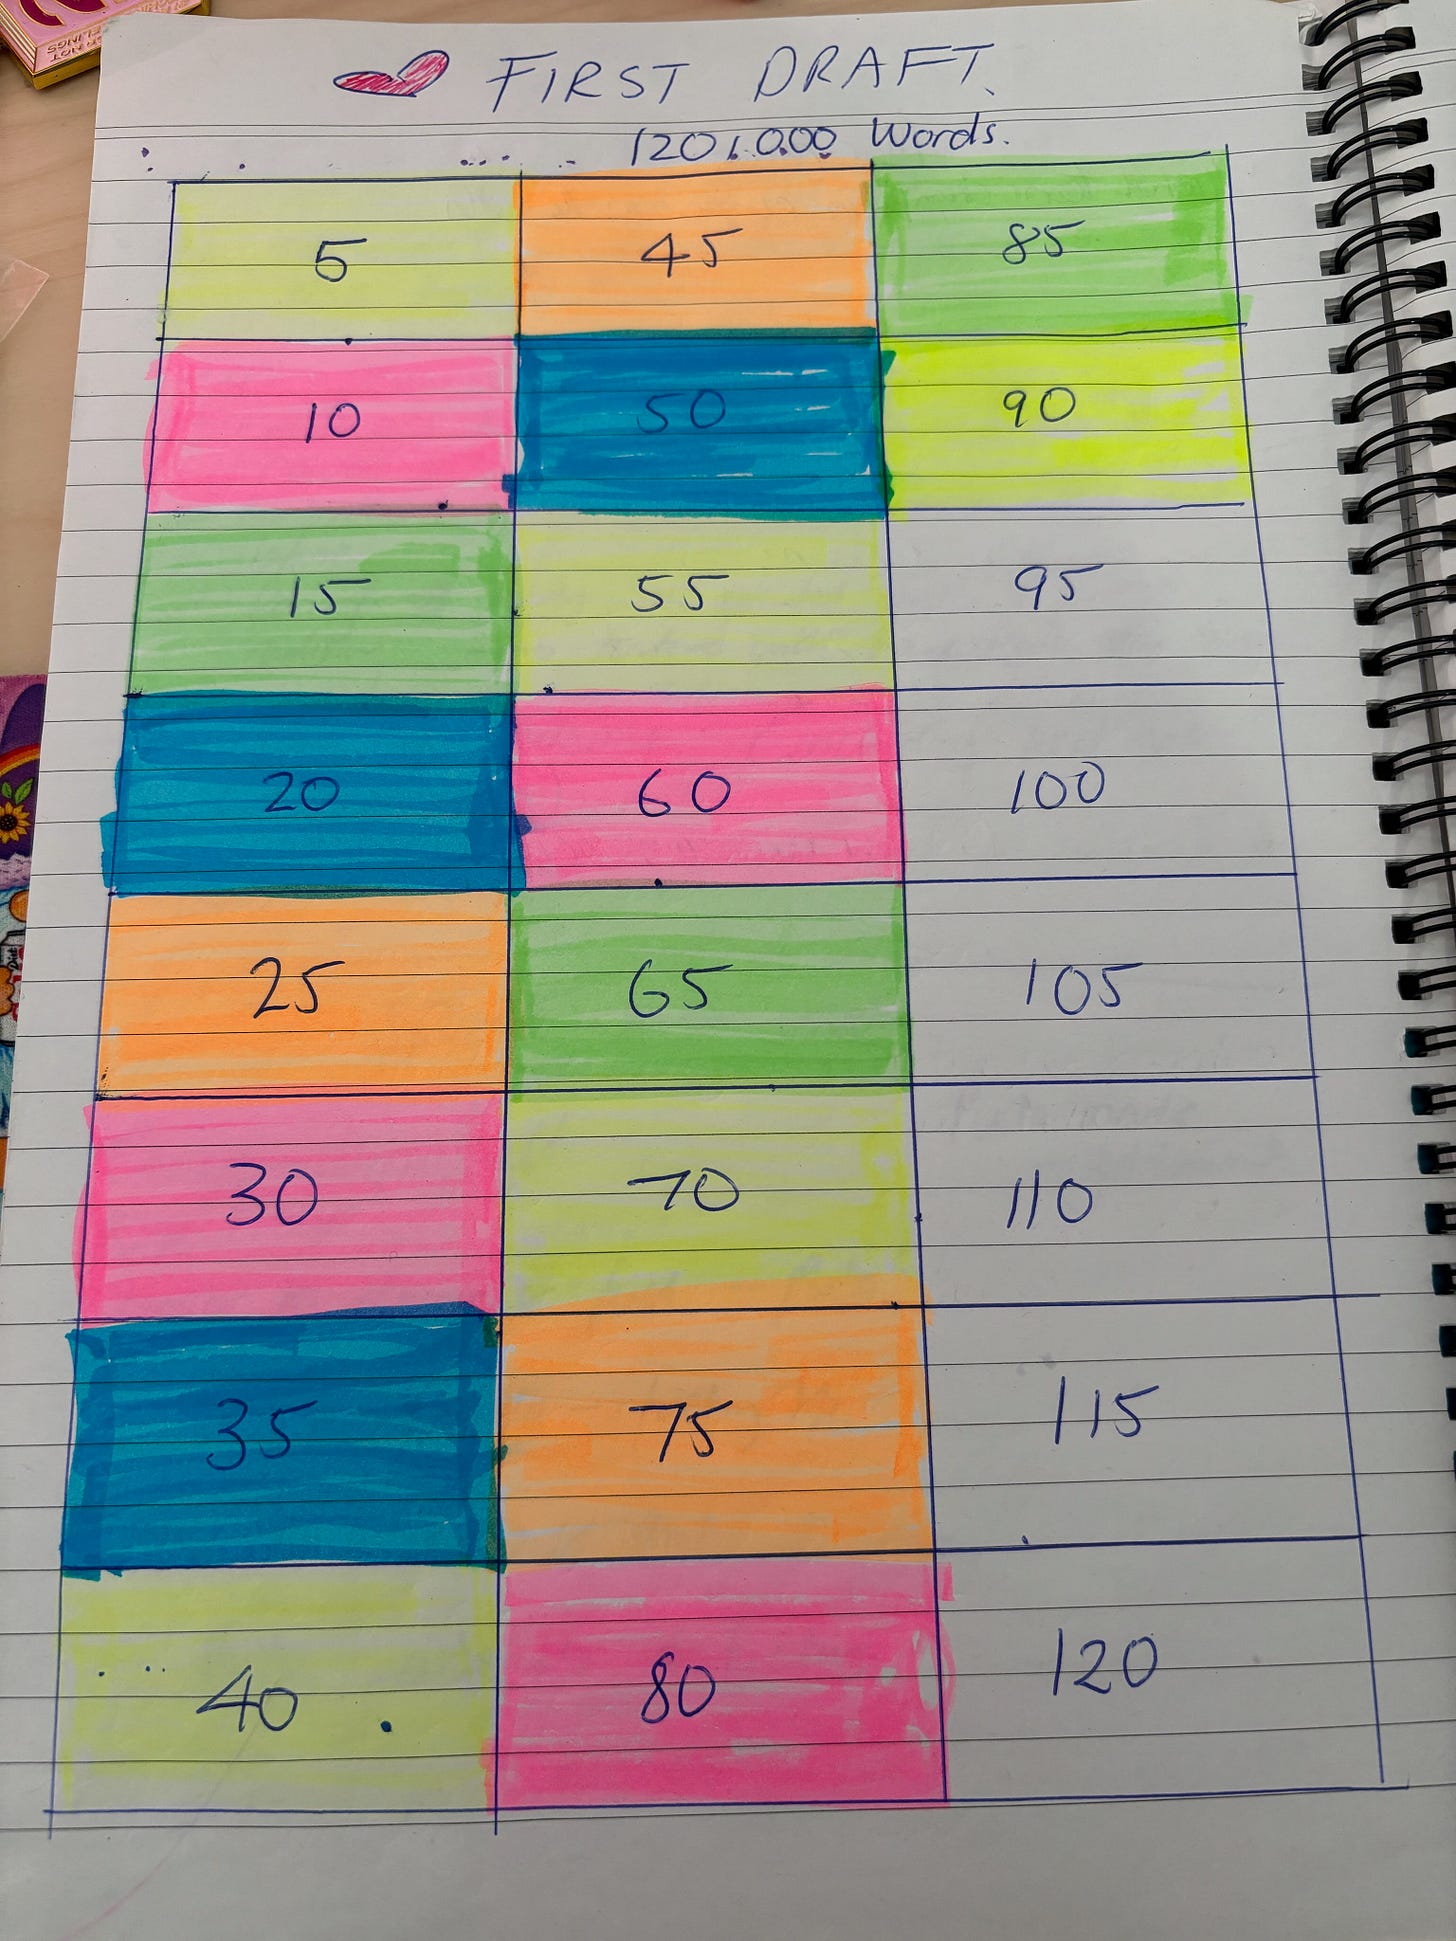 FIRST DRAFT.
120,000 Words.
5 45 85
10 50 90
15 55 95
20 60 100
25 65 105
30 70 110
35 75 115
40 80 120